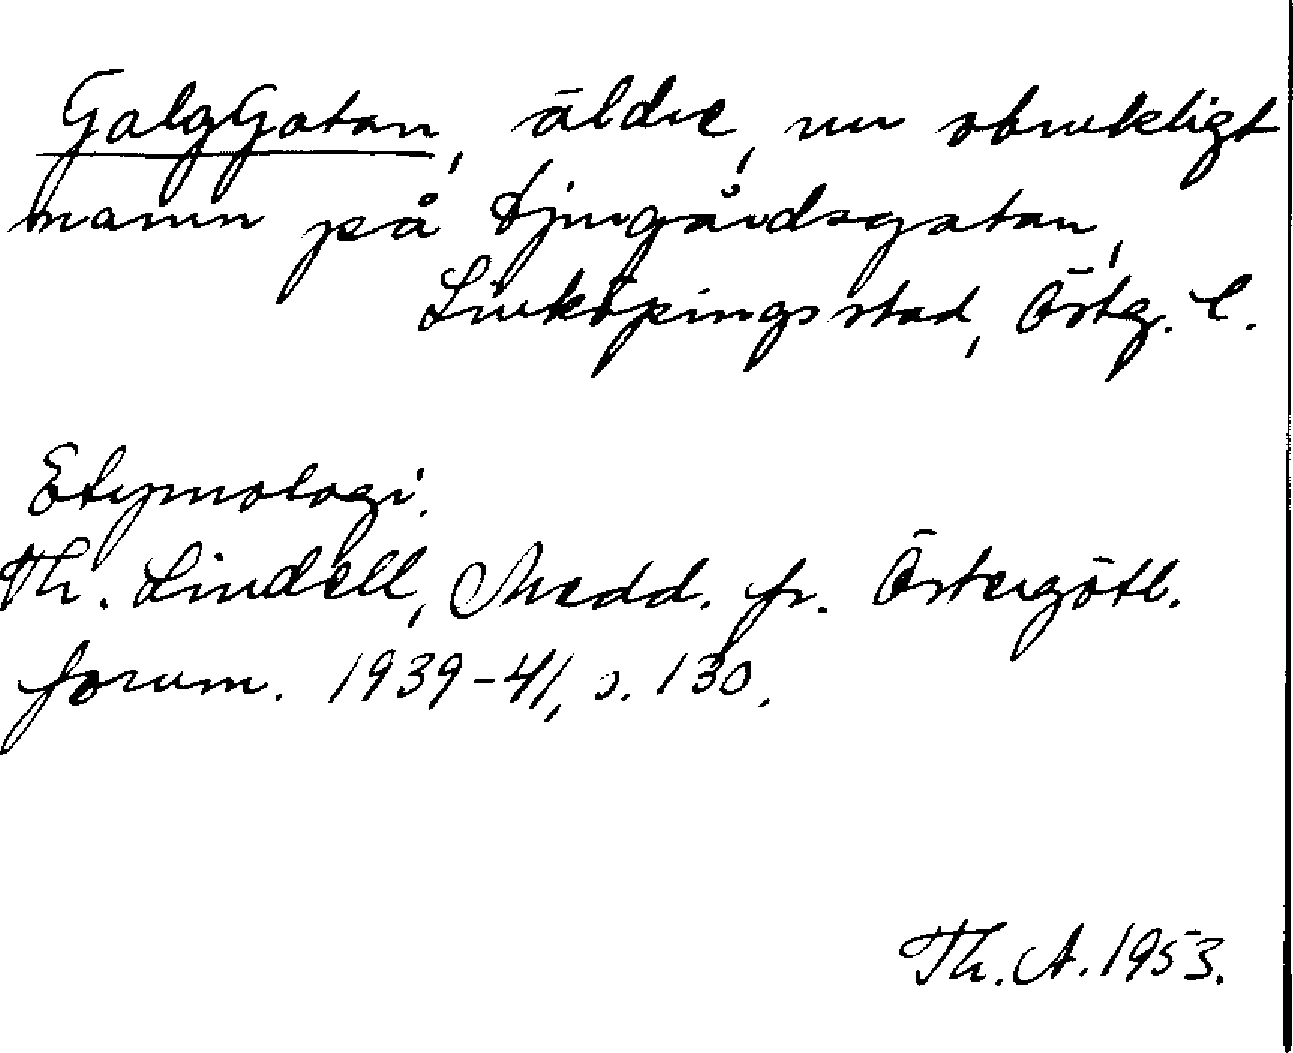 Galggatan, äldre, nu obrukligt
namn på Djurgårdsgatan,
Linköpings stad, Östg. l.
Etymologi.
Th. Lindell, Medd. fr. Östergötl.
fornm. 1939-41, s. 130.
Th. A. 1953.